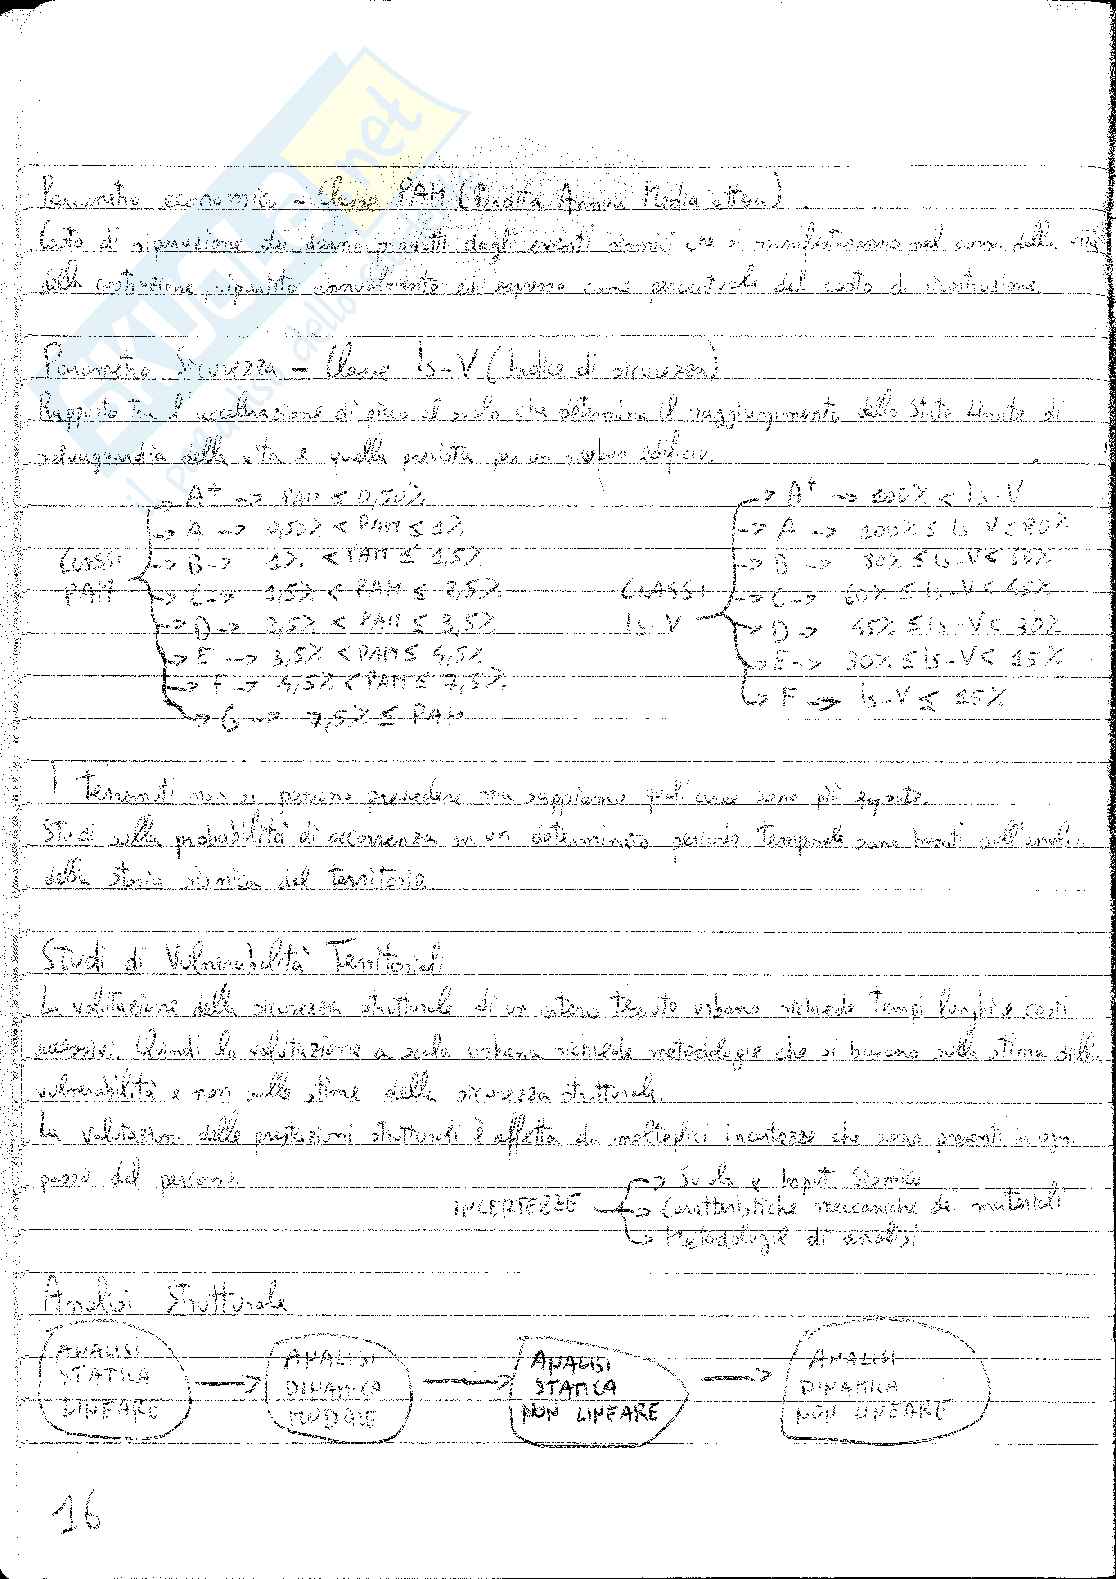 Parametro economico - Classe PAM (Perdita Annua Media attesa)
Costo di riparazione dei danni prodotti dagli eventi sismici che si manifesteranno nel corso della vita
della costruzione, ripartito annualmente ed espresso come percentuale del costo di ricostruzione.
Parametro Sicurezza - Classe Is-V (Indice di sicurezza)
Rapporto tra l'accelerazione di picco al suolo che determina il raggiungimento dello Stato Limite di
salvaguardia della vita e quella prevista per un nuovo edificio.
CLASSI PAM
A+ → PAM ≤ 0,50%
A → 0,50% < PAM ≤ 1%
B → 1% < PAM ≤ 1,5%
C → 1,5% < PAM ≤ 2,5%
D → 2,5% < PAM ≤ 3,5%
E → 3,5% < PAM ≤ 4,5%
F → 4,5% < PAM ≤ 7,5%
G → 7,5% ≤ PAM
CLASSI Is-V
A+ → 100% < Is-V
A → 100% ≤ Is-V < 80%
B → 80% ≤ Is-V <
C → 60% ≤ Is-V < 45%
D → 45% ≤ Is-V < 30%
E → 30% ≤ Is-V < 15%
F → Is-V ≤ 15%
I Terremoti non si possono prevedere ma sappiamo quali aree sono più esposte.
Studi sulla probabilità di occorrenza in un determinato periodo temporale sono basati sull'analisi
della storia sismica del territorio
Studi di Vulnerabilità Territoriali
La valutazione della sicurezza strutturale di un intero tessuto urbano richiede tempi lunghi e costi
eccessivi. Quindi la valutazione a scala urbana richiede metodologie che si basano sulla stima della
vulnerabilità e non sulla stima della sicurezza strutturale.
La valutazione delle prestazioni strutturali è affetta da molteplici incertezze che sono presenti in ogni
passo del percorso
INCERTEZZE
→ Suolo e Input Sismico
→ Caratteristiche meccaniche dei materiali
→ Metodologie di analisi
Analisi Strutturale
ANALISI STATICA LINEARE → ANALISI DINAMICA MODALE → ANALISI STATICA NON LINEARE → ANALISI DINAMICA NON LINEARE
16